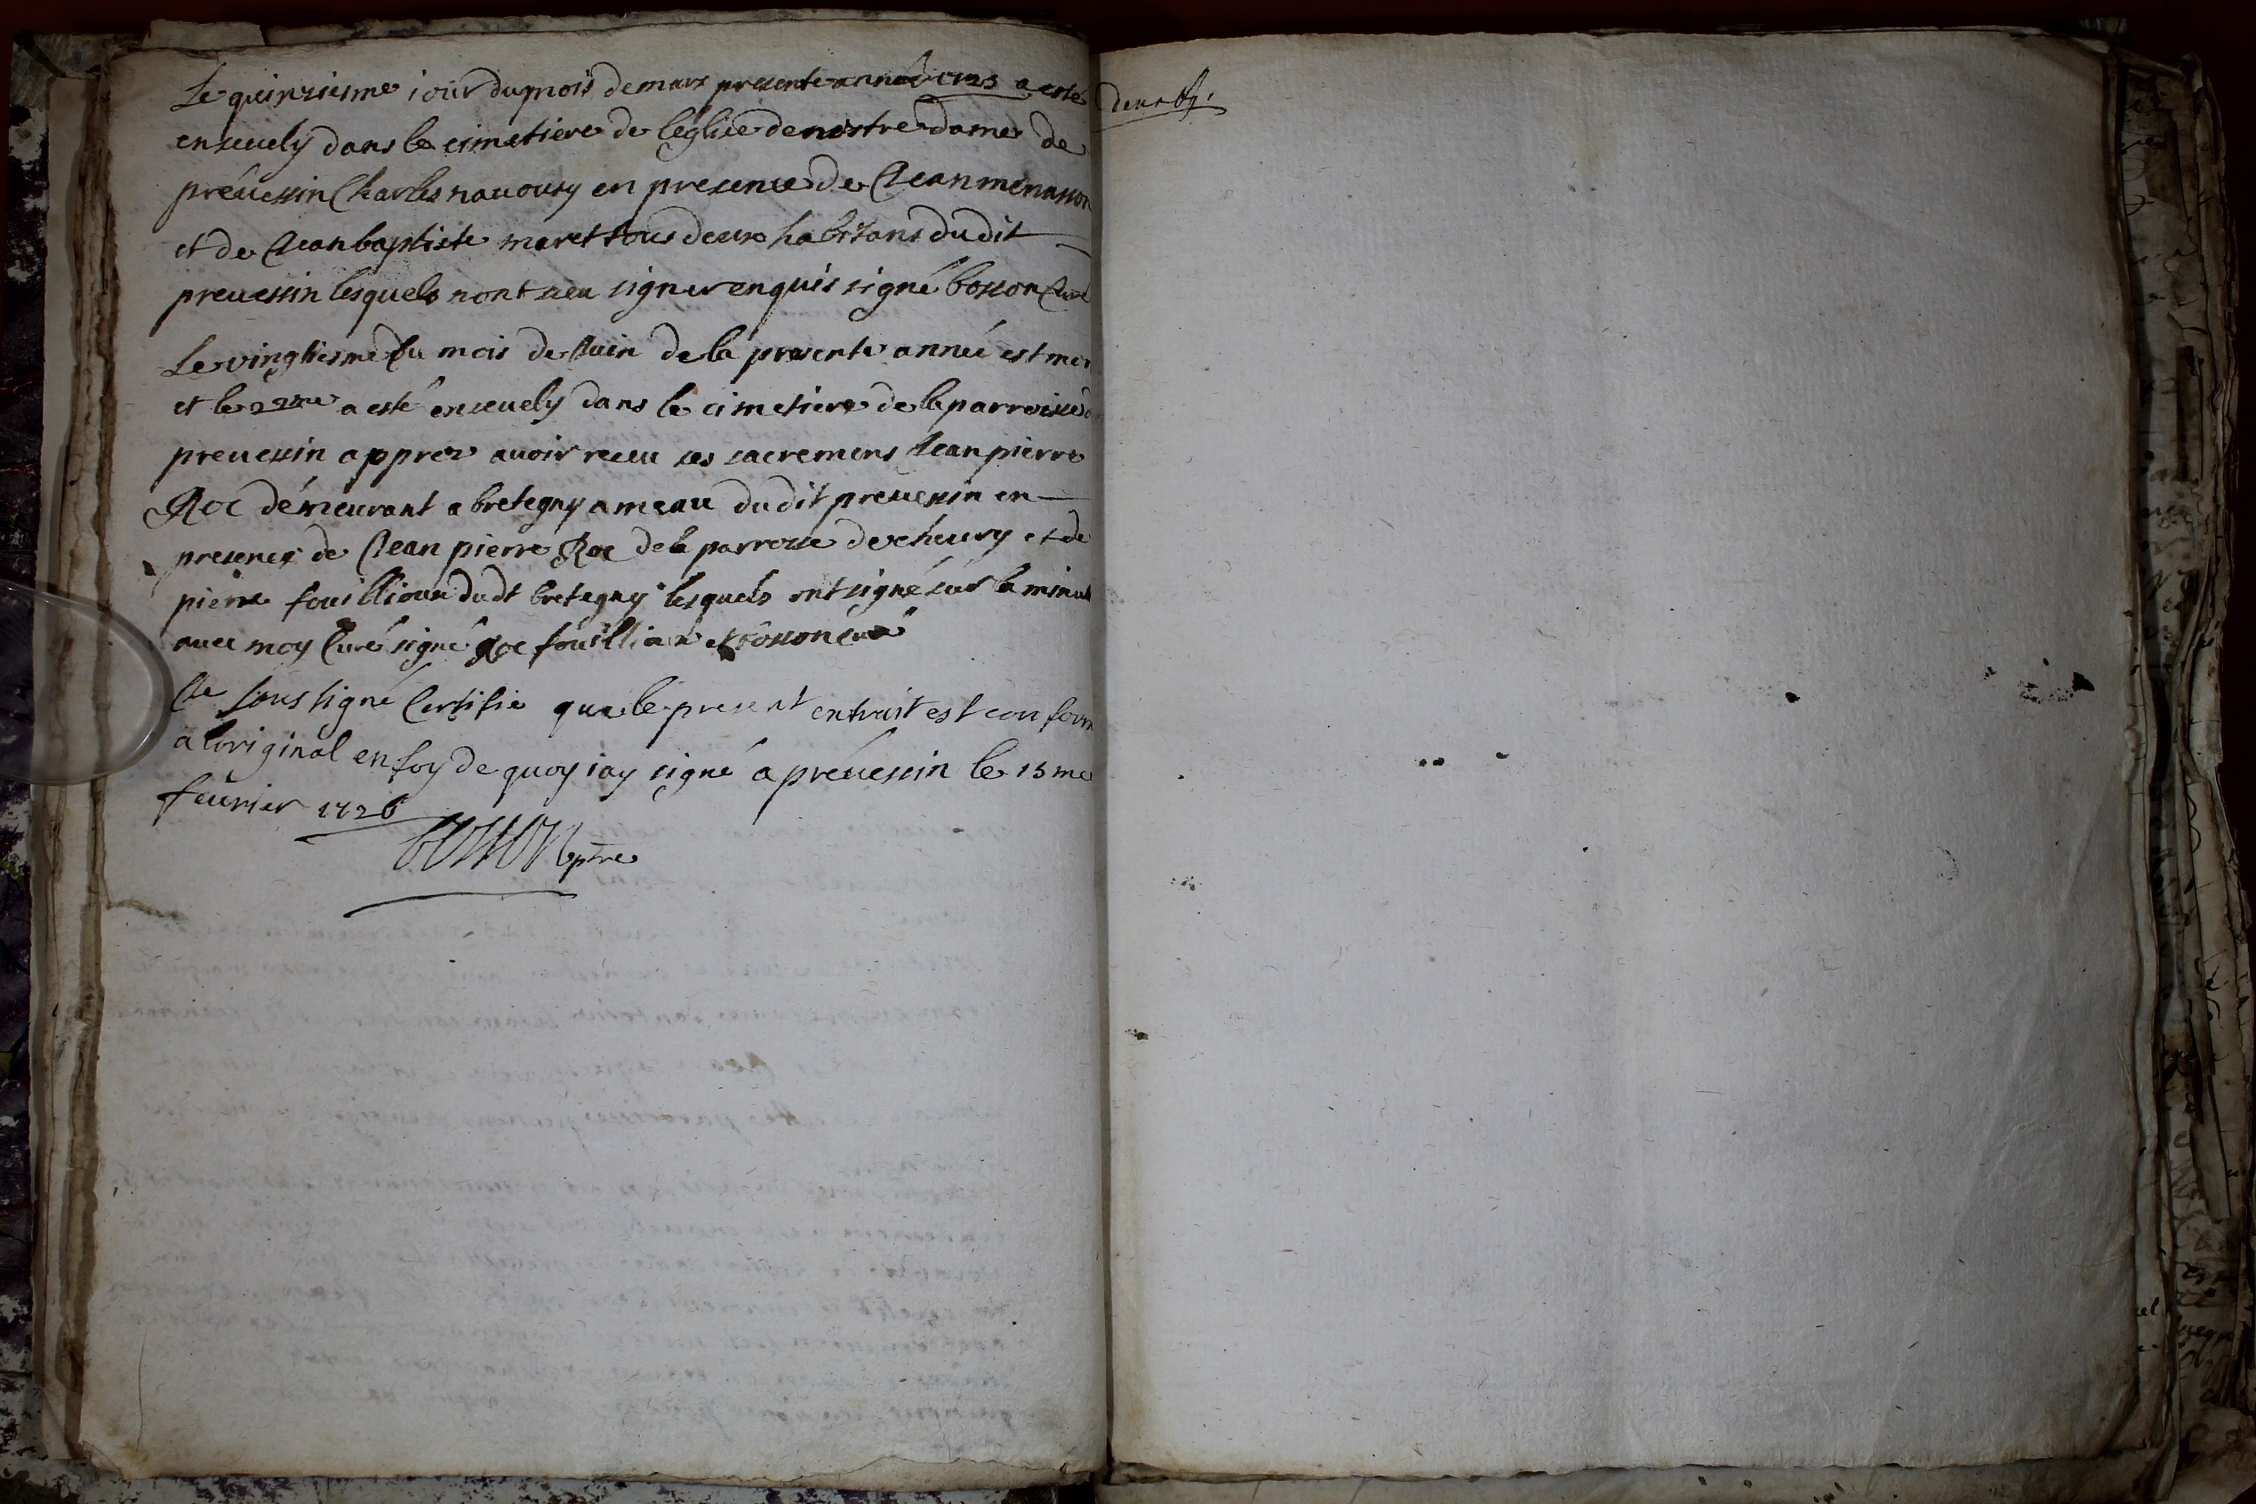 Le quinziesme iour du mois de mars presente année 1725 a esté
ensevely dans le cimetiere de leglise de nostre dame de
prévessin Charles navoury en presence de Jean menasson
et de Jean baptiste maret tous deux habitans du dit
prevessin lesquels nont sceu signer enquis signé bosson Curé
Le vingtiesme du mois de Juin de la presente année est mor
et le 22me a esté ensevely dans le cimetiere de la parroisse de
prevessin apprez avoir receu ses sacremens Jean pierre
Roc démeurant a bretegny ameau du dit prevessin en
presence de Jean pierre Roc de la parroisse de chevry et de
pierre fouillioux dudt bretegny lesquels ont signé sur la minute
avec moy Curé signé Roc fouilliox et bosson curé
Je sous signé Certifie que le present extrait est conform
a loriginal en foy de quoy iay signé a prévessin le 15me
fevrier 1726
bosson ptre